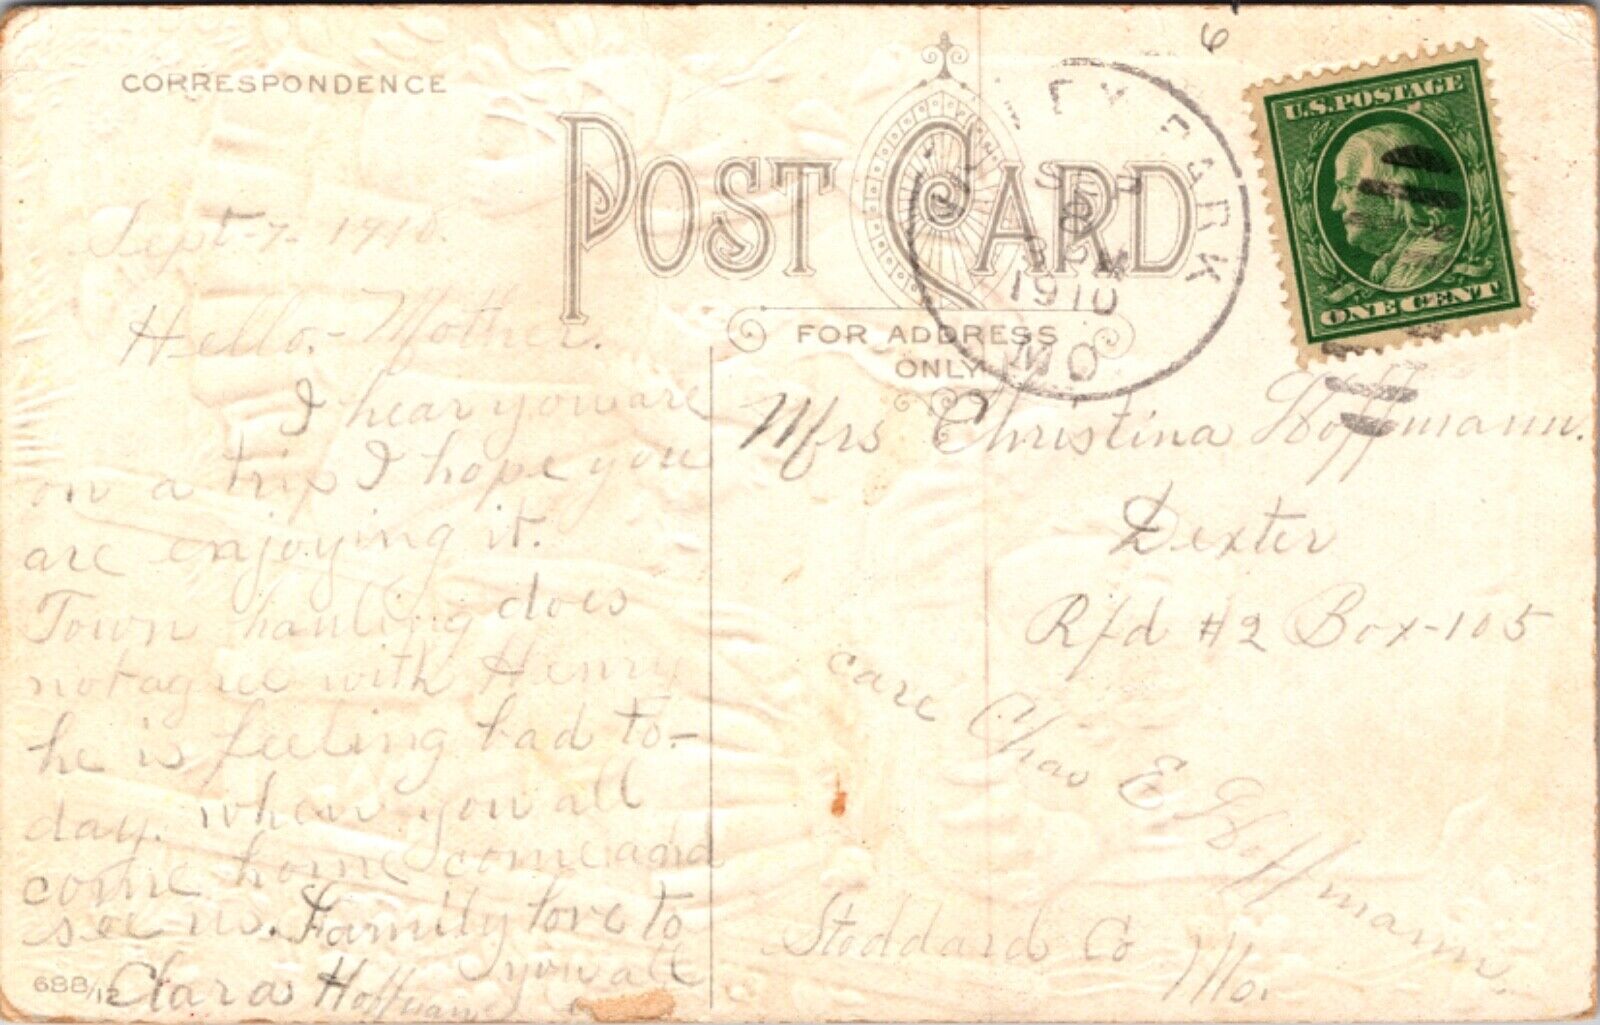 CORRESPONDENCE
POST CARD
FOR ADDRESS
ONLY
SEP
8
PM
1910
MO
U.S. POSTAGE
ONE CENT
Sept-7-1910.
Hello,-Mother.
I hear you are
on a trip I hope you
are enjoying it.
Town hauling does
not agree with Henry
he is feeling bad to-
day. when you all
come home come and
see us. Family love to
you all
Clara Hoffmann
688/12
Mrs Christina Hoffmann.
Dexter
Rfd #2 Box-105
care Chas E Hoffmann,
Stoddard Co
Mo.